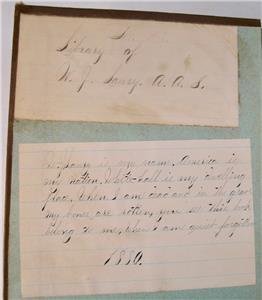 Library of
W. J. Laury. A. A. S.
W. Laury is my name, America is
my nation. White-hall is my dwelling
place, when I am dead and in the grave
my bones are rotten, you see this book
belong to me, when I am quiet forgotten
1880.